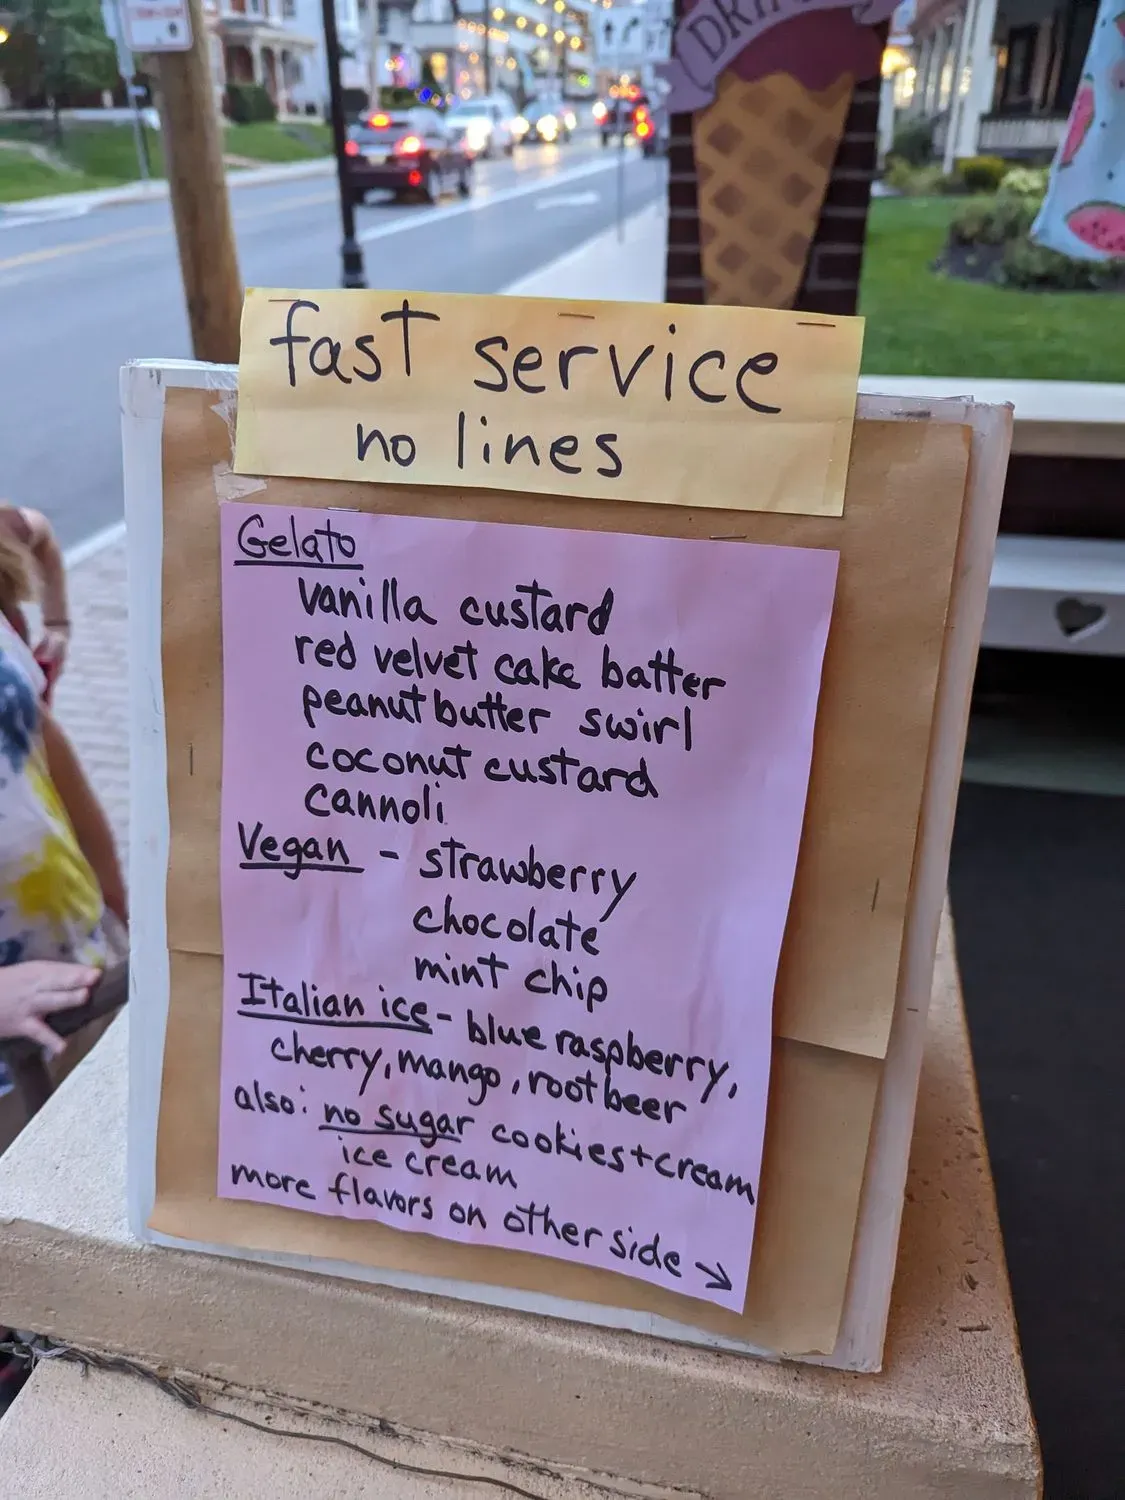 DRIN
fast service
no lines
Gelato
vanilla custard
red velvet cake batter
peanut butter swirl
coconut custard
cannoli
Vegan - strawberry
chocolate
mint chip
Italian ice - blue raspberry,
cherry, mango, root beer
also: no sugar cookies + cream
ice cream
more flavors on other side →